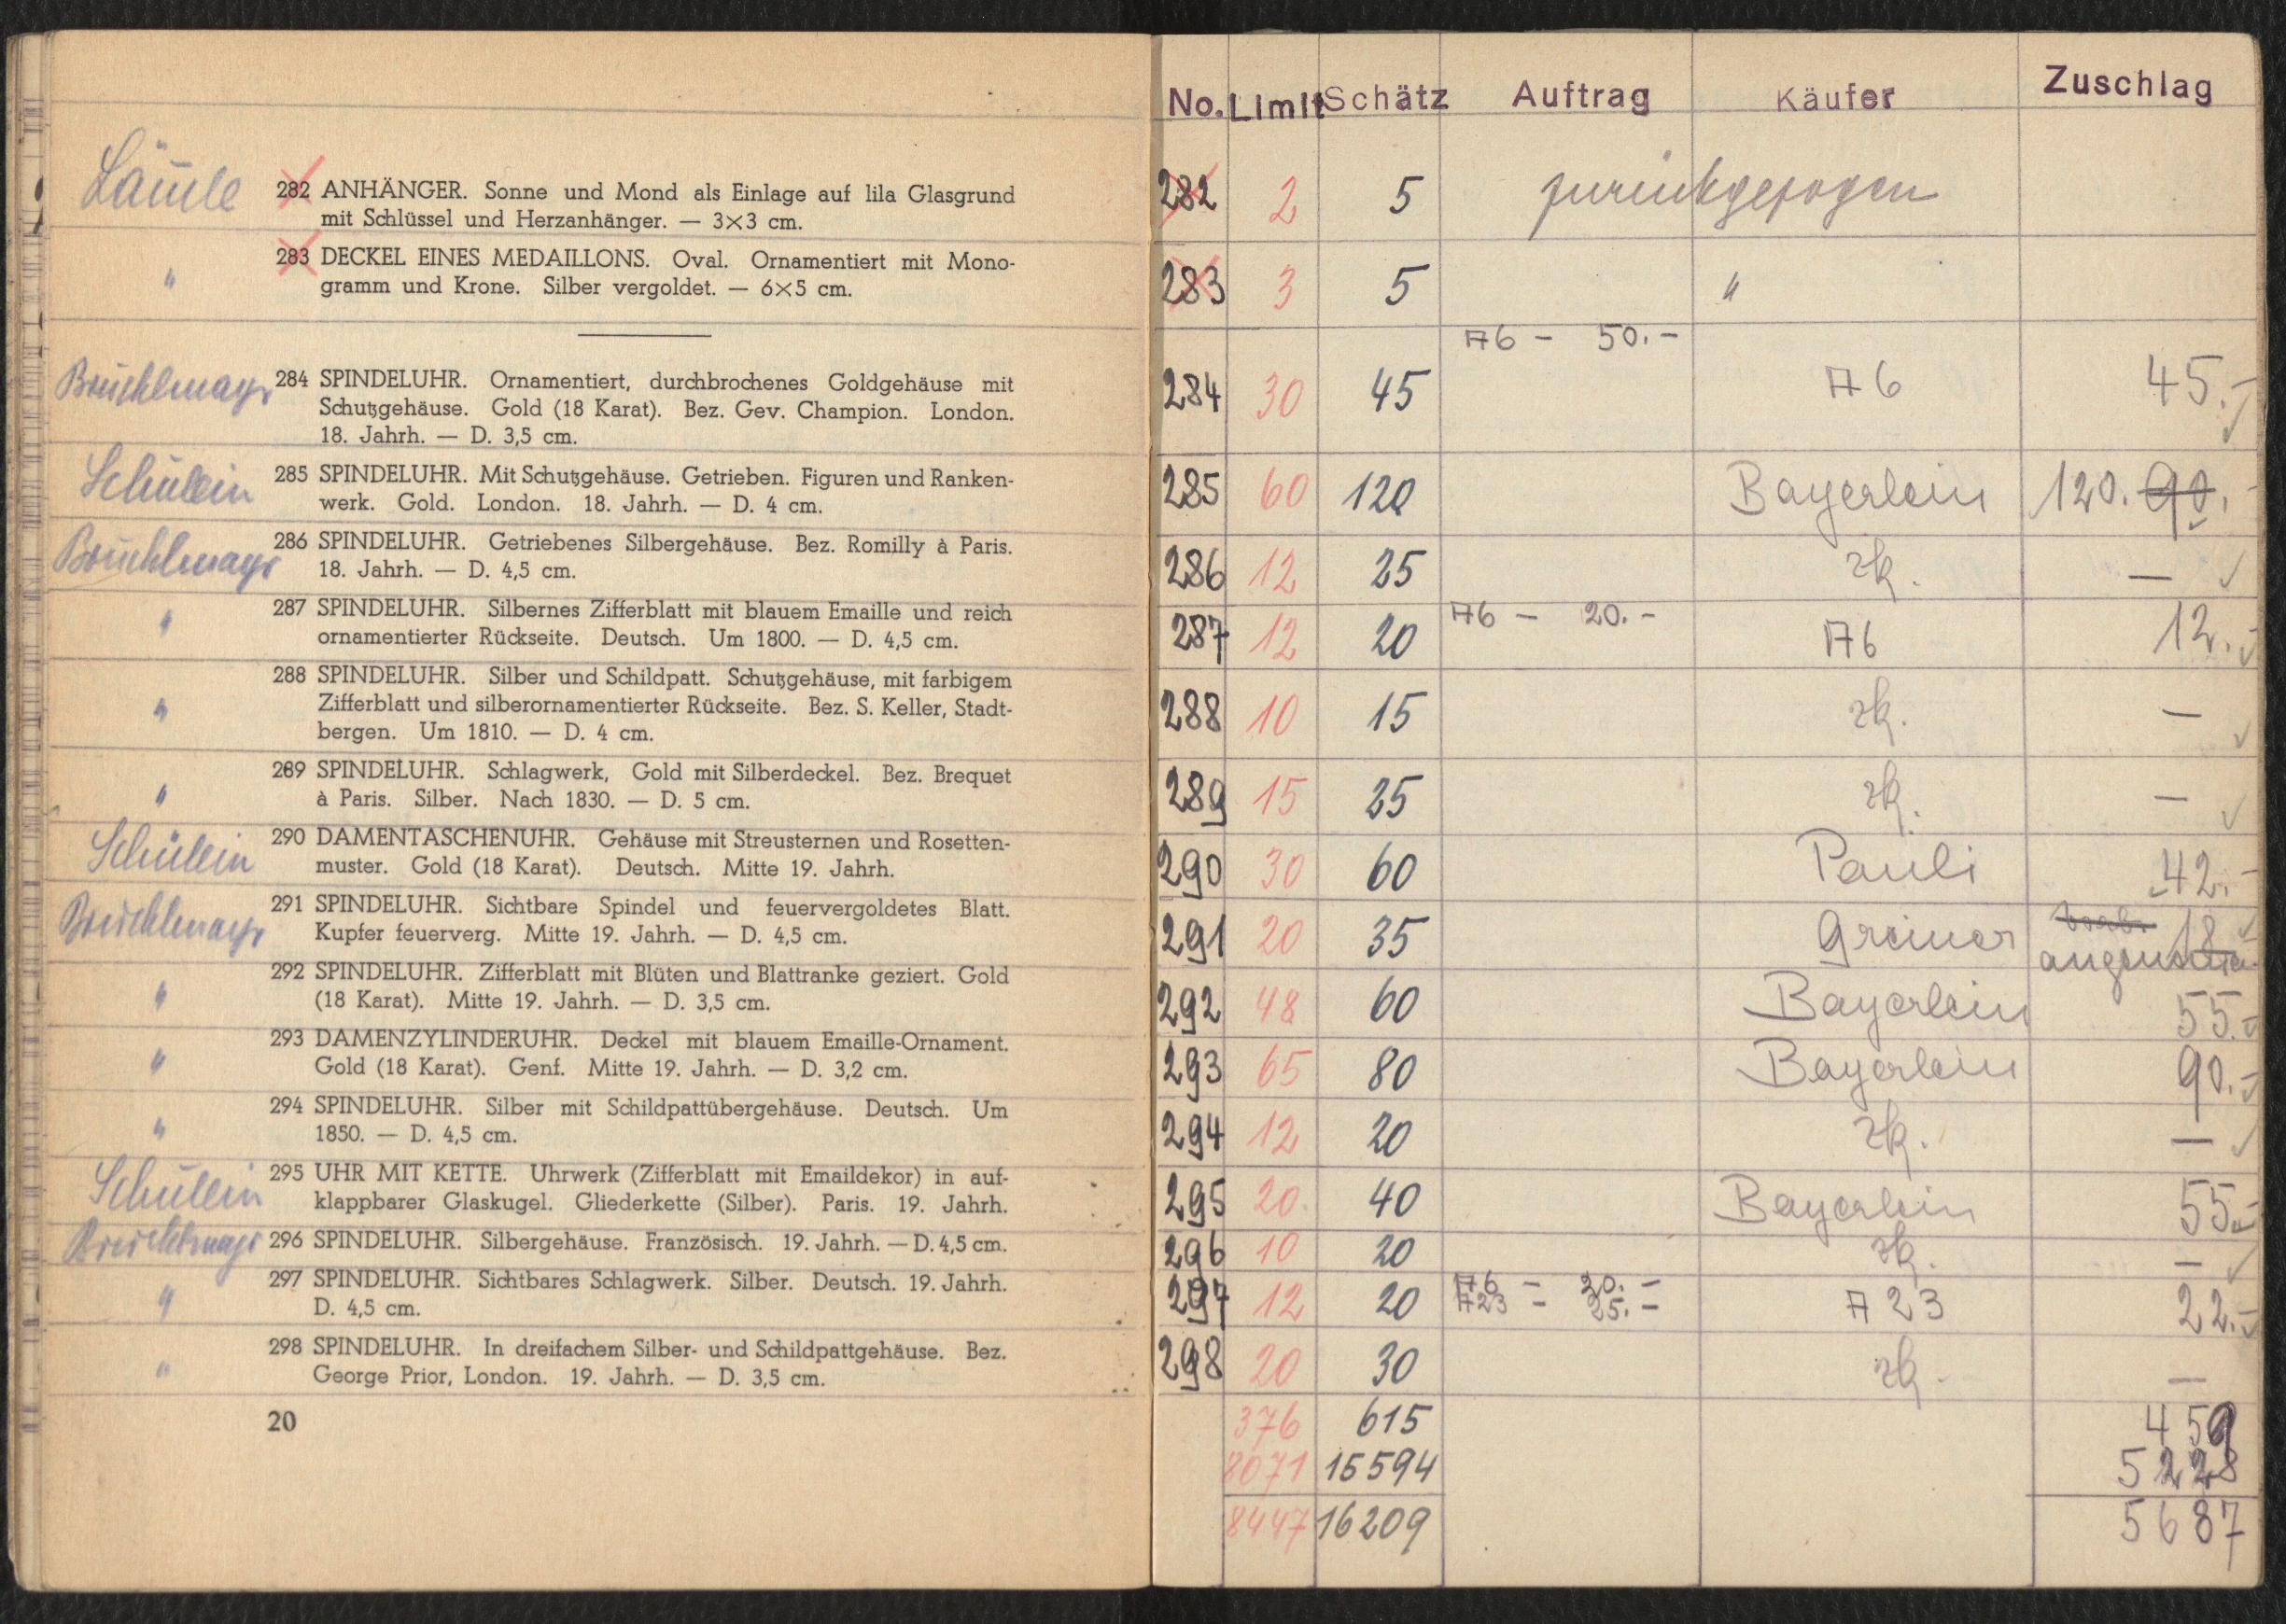 Lämle 282 ANHÄNGER. Sonne und Mond als Einlage auf lila Glasgrund
mit Schlüssel und Herzanhänger. — 3×3 cm.
" 283 DECKEL EINES MEDAILLONS. Oval. Ornamentiert mit Mono-
gramm und Krone. Silber vergoldet. — 6×5 cm.
Brüchlmayr 284 SPINDELUHR. Ornamentiert, durchbrochenes Goldgehäuse mit
Schutzgehäuse. Gold (18 Karat). Bez. Gev. Champion. London.
18. Jahrh. — D. 3,5 cm.
Schülein 285 SPINDELUHR. Mit Schutzgehäuse. Getrieben. Figuren und Ranken-
werk. Gold. London. 18. Jahrh. — D. 4 cm.
Brüchlmayr 286 SPINDELUHR. Getriebenes Silbergehäuse. Bez. Romilly à Paris.
18. Jahrh. — D. 4,5 cm.
" 287 SPINDELUHR. Silbernes Zifferblatt mit blauem Emaille und reich
ornamentierter Rückseite. Deutsch. Um 1800. — D. 4,5 cm.
288 SPINDELUHR. Silber und Schildpatt. Schutzgehäuse, mit farbigem
" Zifferblatt und silberornamentierter Rückseite. Bez. S. Keller, Stadt-
bergen. Um 1810. — D. 4 cm.
289 SPINDELUHR. Schlagwerk, Gold mit Silberdeckel. Bez. Brequet
" à Paris. Silber. Nach 1830. — D. 5 cm.
Schülein 290 DAMENTASCHENUHR. Gehäuse mit Streusternen und Rosetten-
muster. Gold (18 Karat). Deutsch. Mitte 19. Jahrh.
Brüchlmayr 291 SPINDELUHR. Sichtbare Spindel und feuervergoldetes Blatt.
Kupfer feuerverg. Mitte 19. Jahrh. — D. 4,5 cm.
" 292 SPINDELUHR. Zifferblatt mit Blüten und Blattranke geziert. Gold
(18 Karat). Mitte 19. Jahrh. — D. 3,5 cm.
" 293 DAMENZYLINDERUHR. Deckel mit blauem Emaille-Ornament.
Gold (18 Karat). Genf. Mitte 19. Jahrh. — D. 3,2 cm.
" 294 SPINDELUHR. Silber mit Schildpattübergehäuse. Deutsch. Um
1850. — D. 4,5 cm.
Schülein 295 UHR MIT KETTE. Uhrwerk (Zifferblatt mit Emaildekor) in auf-
klappbarer Glaskugel. Gliederkette (Silber). Paris. 19. Jahrh.
Brüchlmayr 296 SPINDELUHR. Silbergehäuse. Französisch. 19. Jahrh. — D. 4,5 cm.
" 297 SPINDELUHR. Sichtbares Schlagwerk. Silber. Deutsch. 19. Jahrh.
D. 4,5 cm.
" 298 SPINDELUHR. In dreifachem Silber- und Schildpattgehäuse. Bez.
George Prior, London. 19. Jahrh. — D. 3,5 cm.
20
No. Limit Schätz Auftrag Käufer Zuschlag
282 2 5 zurückgezogen
283 3 5 "
A6 — 50.—
284 30 45 A6 45.-
285 60 120 Bayerlein 120. 90.-
286 12 25 zk. —
A6 — 20.—
287 12 20 A6 12.-
288 10 15 zk. —
289 15 25 zk. —
290 30 60 Pauli 42.-
291 20 35 Greiner 18
292 48 60 Bayerlein 55.-
293 65 80 Bayerlein 90.-
294 12 20 zk. —
295 20. 40 Bayerlein 55.-
296 10 20 zk. —
A6 — 20.—
297 12 20 A23 — 25.— A23 22.-
298 20 30 zk. —
376 615 459
8071 15594 5228
8447 16209 5687